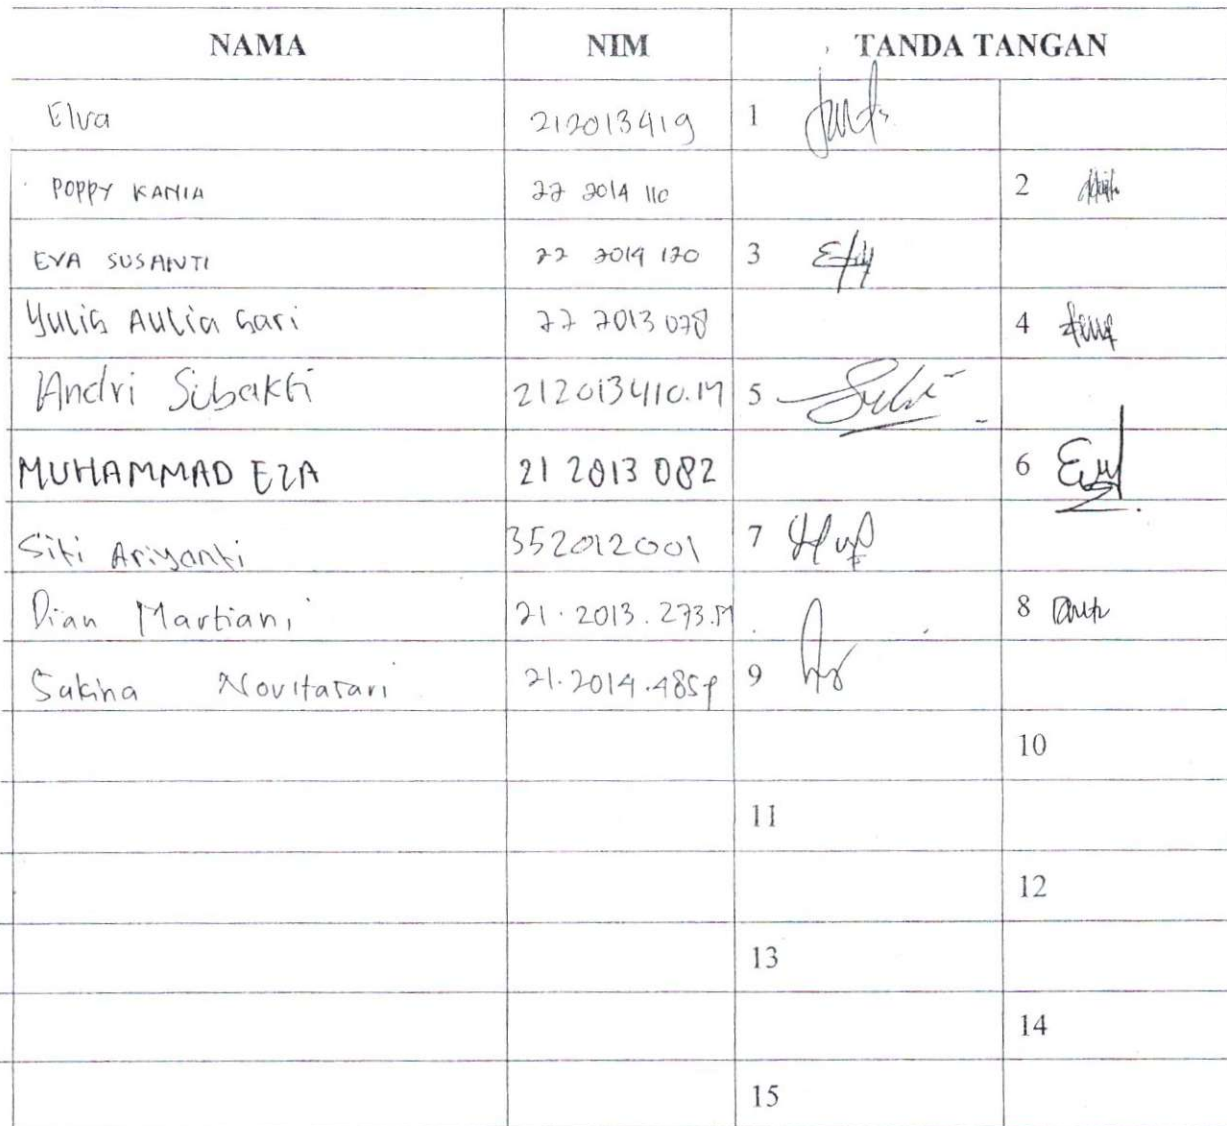 NAMA NIM TANDA TANGAN
Elva 212013419 1
POPPY KANIA 22 2014 110 2
EVA SUSANTI 22 2014 120 3
Yulis Aulia Sari 22 2013 078 4
Andri Sibakti 212013410.M 5
MUHAMMAD EZA 21 2013 082 6
Siti Ariyanti 352012001 7
Dian Martiani 21.2013.273.M 8
Sakina Novitasari 21.2014.485P 9
10
11
12
13
14
15